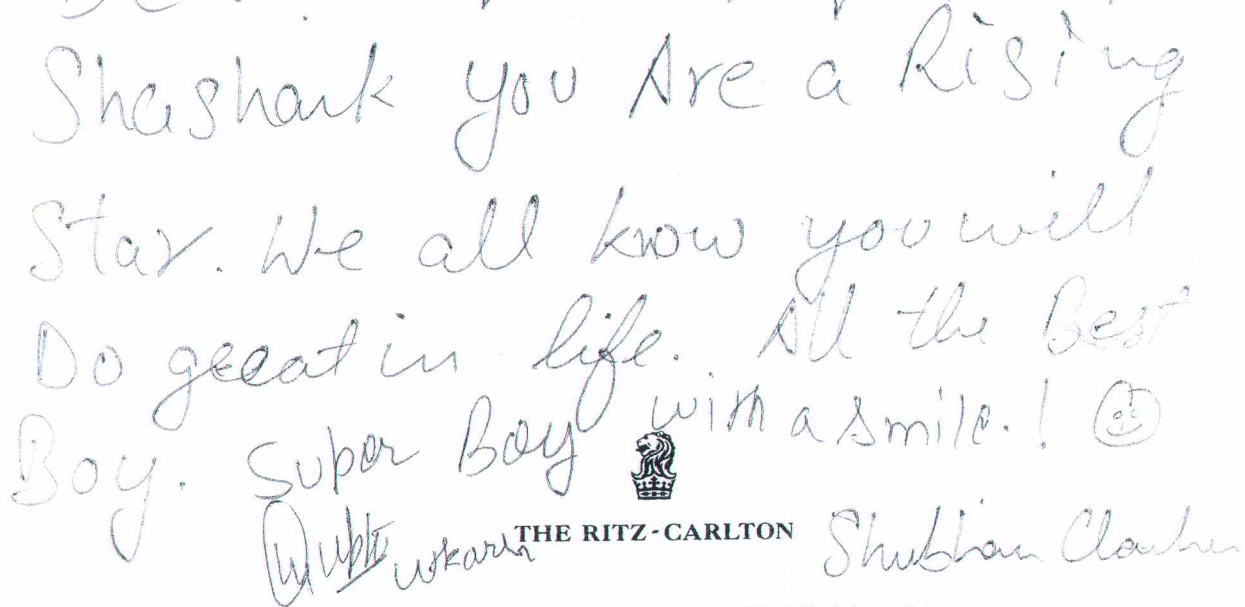 Shashank you Are a Rising
Star. We all know you will
Do great in life. All the Best
Boy. Super Boy with a smile.!
THE RITZ-CARLTON